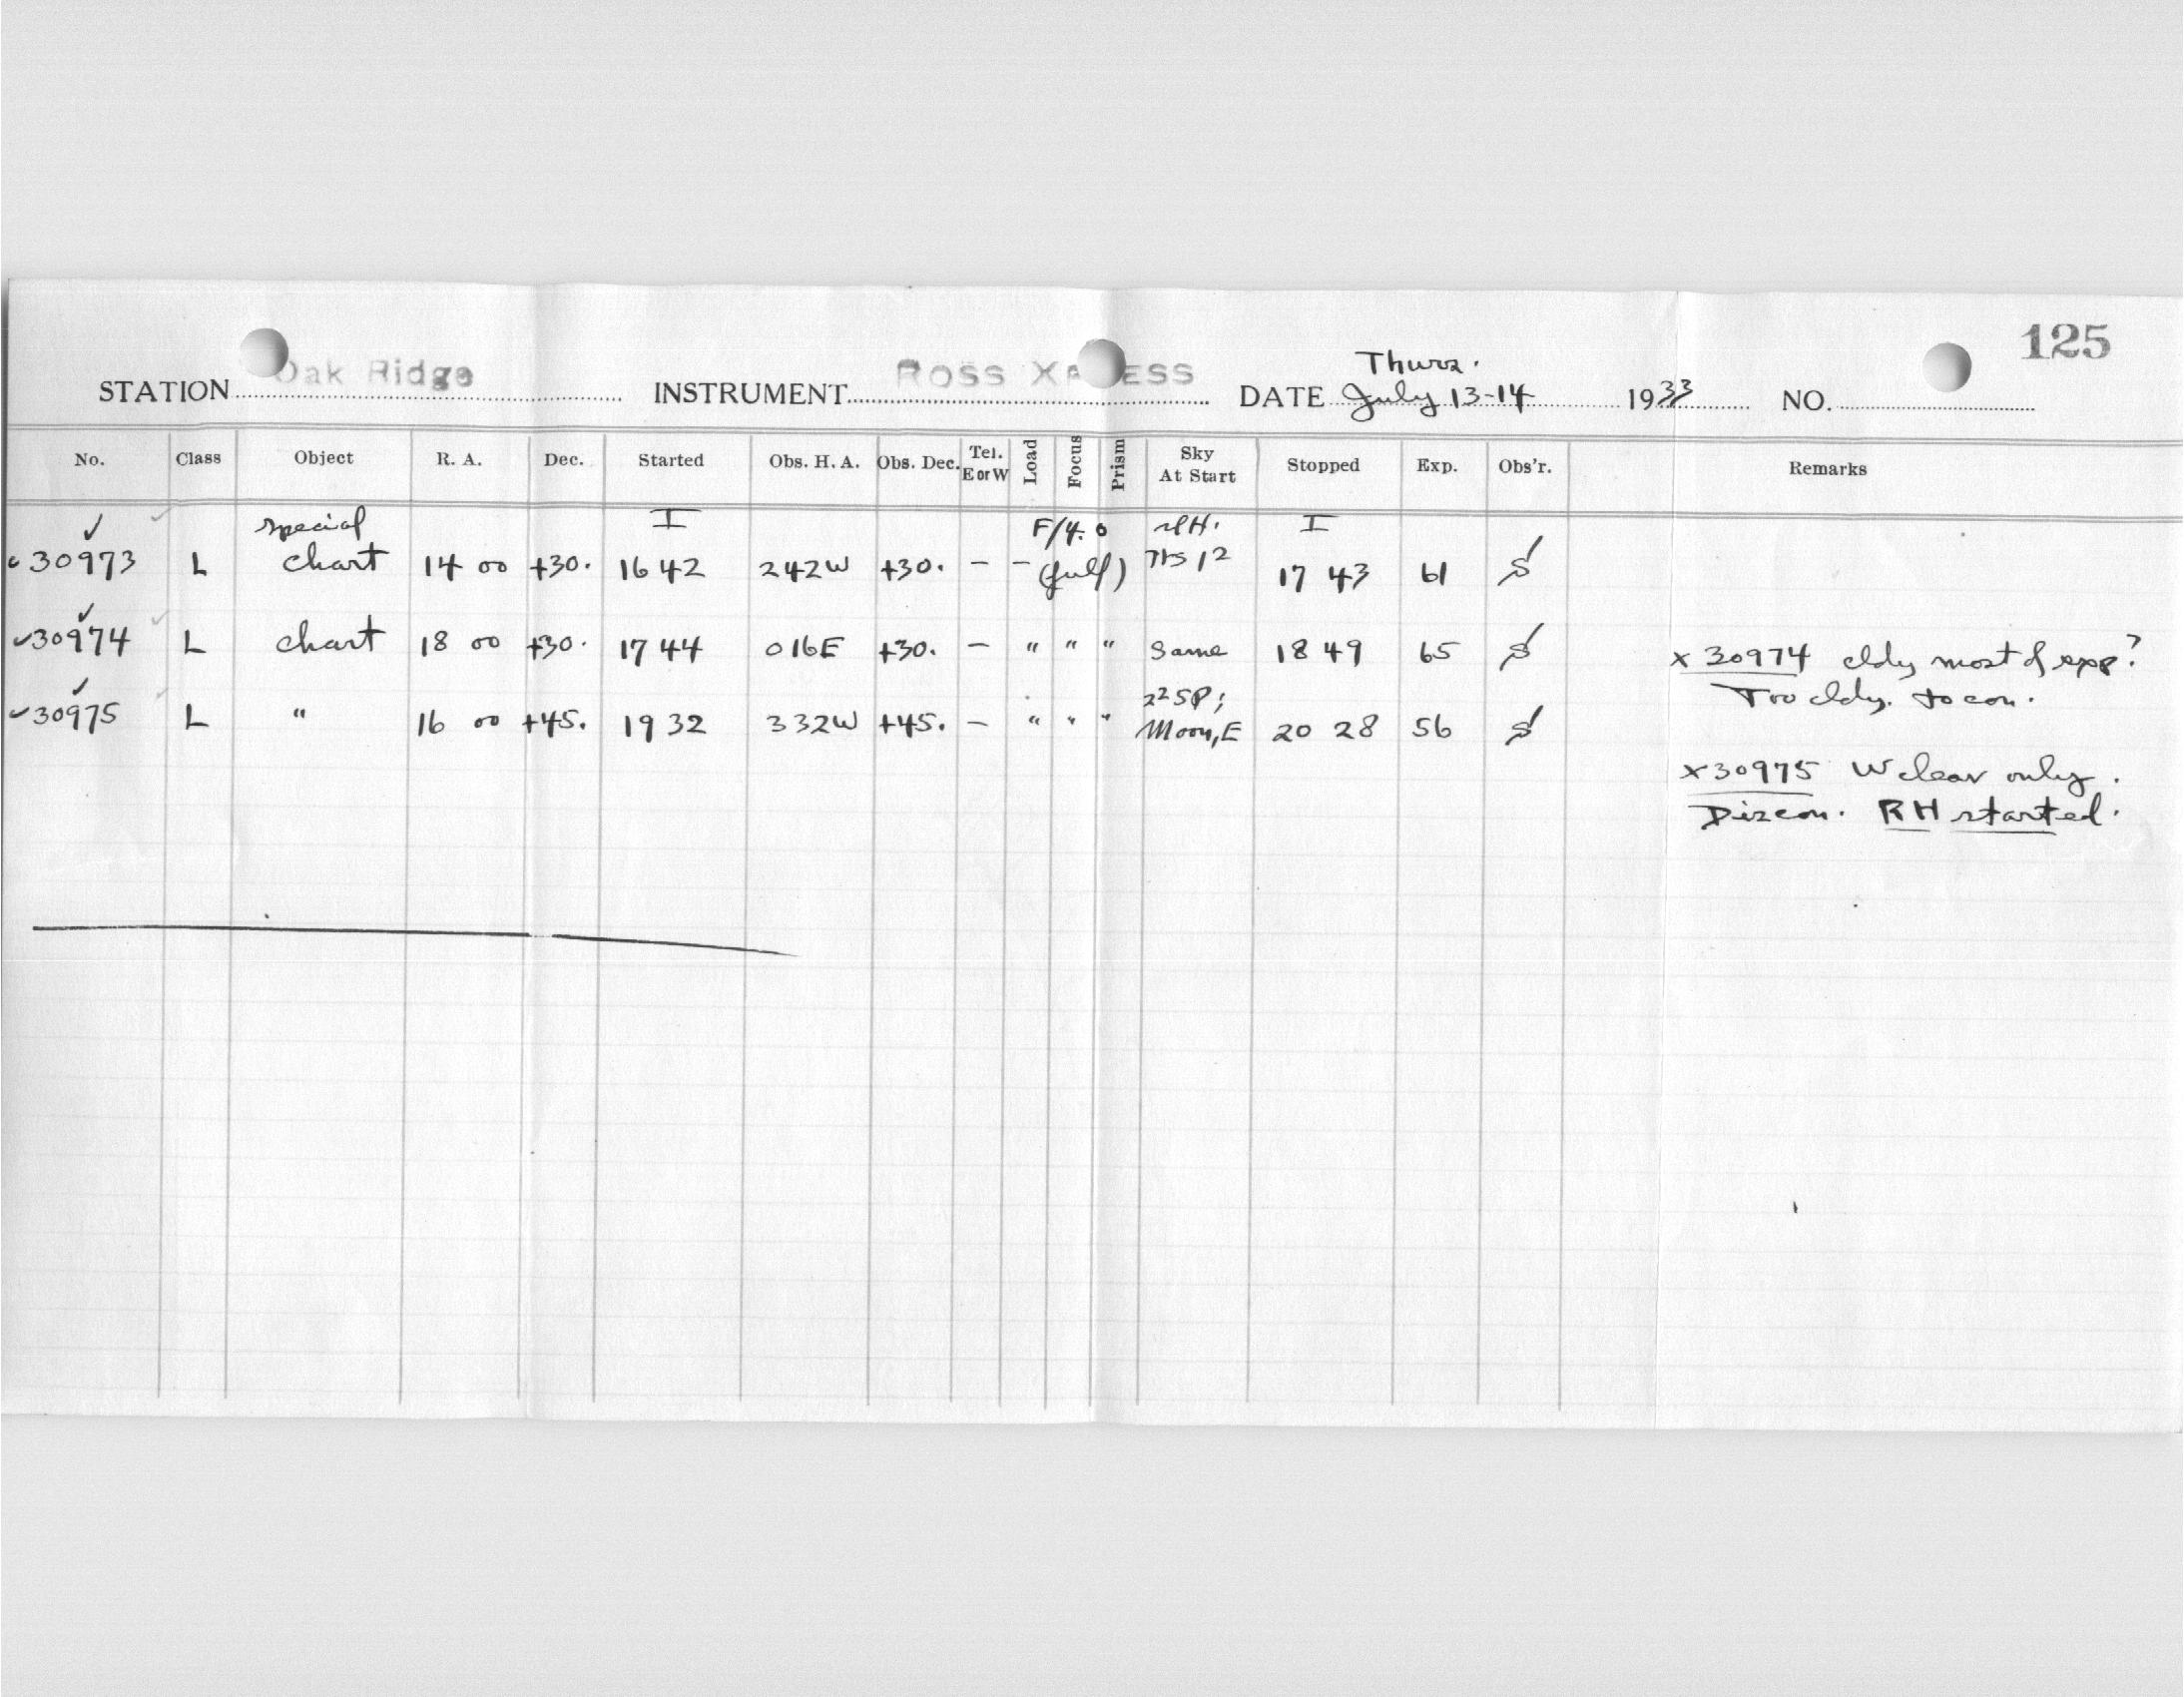 125
Thurs.
STATION Oak Ridge INSTRUMENT ROSS XPRESS DATE July 13-14 1933 NO.
No. Class Object R. A. Dec. Started Obs. H. A. Obs. Dec. Tel. E or W Load Focus Prism Sky At Start Stopped Exp. Obs'r. Remarks
special I F/4.0 I
30973 L chart 14 00 +30. 16 42 242W +30. - - (full) 17 43 61 S
30974 L chart 18 00 +30. 17 44 016E +30. - " " " Same 18 49 65 S x 30974 cldy most of exp?
Too cldy. to con.
30975 L " 16 00 +45. 19 32 332W +45. - " " " Moon, E 20 28 56 S
x 30975 W clear only.
Discon. RH started.